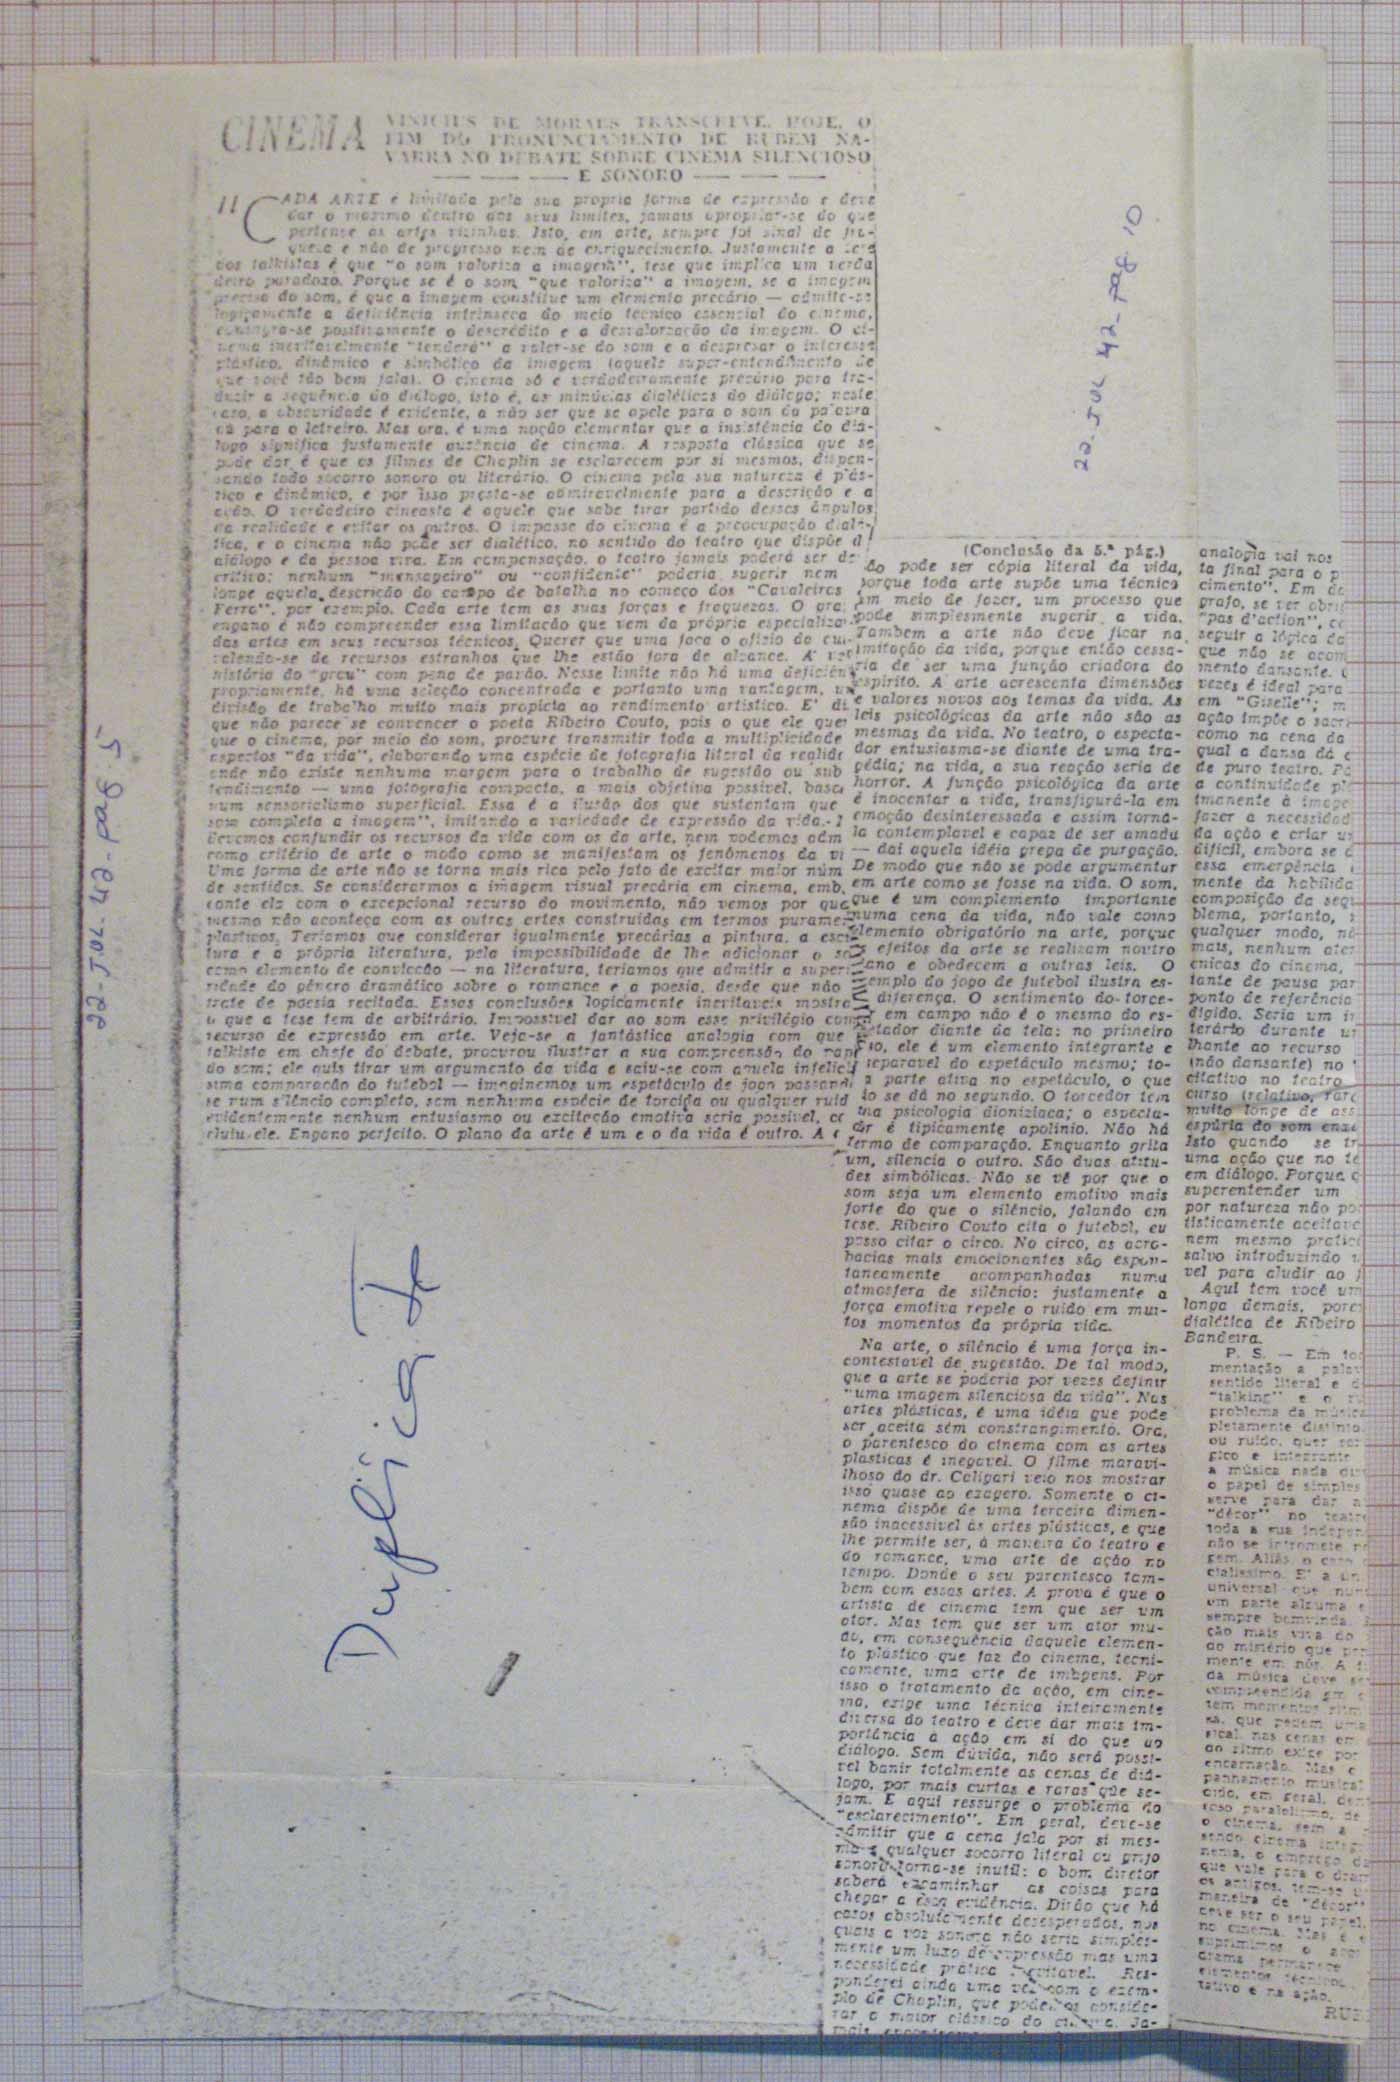 CINEMA
VINICIUS DE MORAES TRANSCREVE, HOJE, O
FIM DO PRONUNCIAMENTO DE RUBEM NA-
VARRA NO DEBATE SOBRE CINEMA SILENCIOSO
E SONORO
"CADA ARTE é limitada pela sua propria forma de expressão e deve
dar o maximo dentro dos seus limites, jamais apropriar-se do que
pertence as artes vizinhas. Isto, em arte, sempre foi sinal de fra-
queza e não de progresso nem de enriquecimento. Justamente a tese
dos talkistas é que "o som valoriza a imagem", tese que implica um verda
deiro paradoxo. Porque se é o som "que valoriza" a imagem, se a imagem
precisa do som, é que a imagem constitue um elemento precário — admite-se
logicamente a deficiência intrinseca do meio técnico essencial do cinema,
consagra-se positivamente o descrédito e a desvalorização da imagem. O ci-
nema inevitavelmente "tenderá" a valer-se do som e a desprezar o interesse
plástico, dinâmico e simbólico da imagem (aquele super-entendimento de
que você tão bem fala). O cinema só é verdadeiramente precário para tra-
duzir a sequência do diálogo, isto é, as minúcias dialéticas do diálogo; neste
caso, a obscuridade é evidente, a não ser que se apele para o som da palavra
ou para o letreiro. Mas ora, é uma noção elementar que a insistência do diá-
logo significa justamente ausência de cinema. A resposta clássica que se
pode dar é que os filmes de Chaplin se esclarecem por si mesmos, dispen-
sando todo socorro sonoro ou literário. O cinema pela sua natureza é plás-
tico e dinâmico, e por isso presta-se admiravelmente para a descrição e a
ação. O verdadeiro cineasta é aquele que sabe tirar partido desses ângulos
da realidade e evitar os outros. O impasse do cinema é a preocupação dialé-
tica, e o cinema não pode ser dialético, no sentido do teatro que dispõe d
diálogo e da pessoa viva. Em compensação, o teatro jamais poderá ser de
critivo: nenhum "mensageiro" ou "confidente" poderia sugerir nem
longe aquela descrição do campo de batalha no começo dos "Cavaleiros
Ferro", por exemplo. Cada arte tem as suas forças e fraquezas. O gra
engano é não compreender essa limitação que vem da própria especializa
das artes em seus recursos técnicos. Querer que uma faça o ofício da ou
valendo-se de recursos estranhos que lhe estão fora de alcance. A vel
história do "grou" com pena de pavão. Nesse limite não há uma deficiên
propriamente, há uma seleção concentrada e portanto uma vantagem, u
divisão de trabalho muito mais propicia ao rendimento artistico. E' di
que não parece se convencer o poeta Ribeiro Couto, pois o que ele que
que o cinema, por meio do som, procure transmitir toda a multiplicidade
aspectos "da vida", elaborando uma espécie de fotografia literal da realida
onde não existe nenhuma margem para o trabalho de sugestão ou sub
tendimento — uma fotografia compacta, a mais objetiva possivel, basea
num sensorialismo superficial. Essa é a ilusão dos que sustentam que
som completa a imagem", imitando a variedade de expressão da vida.
devemos confundir os recursos da vida com os da arte, nem podemos adm
como critério de arte o modo como se manifestam os fenômenos da vi
Uma forma de arte não se torna mais rica pelo fato de excitar maior núm
de sentidos. Se considerarmos a imagem visual precária em cinema, emb
conte ela com o excepcional recurso do movimento, não vemos por que
mesmo não aconteça com as outras artes construidas em termos purame
plasticos. Teriamos que considerar igualmente precárias a pintura, a escu
tura e a própria literatura, pela impossibilidade de lhe adicionar o so
como elemento de convicção — na literatura, teriamos que admitir a superi
ridade do gênero dramático sobre o romance e a poesia, desde que não
trate de poesia recitada. Essas conclusões logicamente inevitaveis mostra
o que a tese tem de arbitrário. Impossivel dar ao som esse privilégio com
recurso de expressão em arte. Veja-se a fantástica analogia com que
talkista em chefe do debate, procurou ilustrar a sua compreensão do pape
do som; ele quis tirar um argumento da vida e saiu-se com aquela infelici
sima comparação do futebol — imaginemos um espetáculo de jogo passand
se num silêncio completo, sem nenhuma espécie de torcida ou qualquer ruid
evidentemente nenhum entusiasmo ou excitação emotiva seria possivel, co
cluiu ele. Engano perfeito. O plano da arte é um e o da vida é outro. A
(Conclusão da 5.ª pág.)
ão pode ser cópia literal da vida,
porque toda arte supõe uma técnica
um meio de fazer, um processo que
pode simplesmente sugerir a vida.
Tambem a arte não deve ficar na
imitação da vida, porque então cessa-
ria de ser uma função criadora do
espirito. A arte acrescenta dimensões
e valores novos aos temas da vida. As
leis psicológicas da arte não são as
mesmas da vida. No teatro, o especta-
dor entusiasma-se diante de uma tra-
gédia; na vida, a sua reação seria de
horror. A função psicológica da arte
é inocentar a vida, transfigurá-la em
emoção desinteressada e assim torná-
la contemplavel e capaz de ser amada
— dai aquela idéia grega de purgação.
De modo que não se pode argumentar
em arte como se fosse na vida. O som,
que é um complemento importante
numa cena da vida, não vale como
elemento obrigatório na arte, porque
s efeitos da arte se realizam noutro
lano e obedecem a outras leis. O
emplo do jogo de futebol ilustra es-
diferença. O sentimento do torce-
r em campo não é o mesmo do es-
petador diante da tela: no primeiro
so, ele é um elemento integrante e
reparavel do espetáculo mesmo; to-
a parte ativa no espetáculo, o que
ão se dá no segundo. O torcedor tem
ma psicologia dionizíaca; o especta-
dor é tipicamente apolinio. Não há
termo de comparação. Enquanto grita
um, silencia o outro. São duas atitu-
des simbólicas. Não se vê por que o
som seja um elemento emotivo mais
forte do que o silêncio, falando em
tese. Ribeiro Couto cita o futebol, eu
posso citar o circo. No circo, as acro-
bacias mais emocionantes são espon-
taneamente acompanhadas numa
atmosfera de silêncio: justamente a
força emotiva repele o ruido em mui-
tos momentos da própria vida.
Na arte, o silêncio é uma força in-
contestavel de sugestão. De tal modo,
que a arte se poderia por vezes definir
"uma imagem silenciosa da vida". Nas
artes plásticas, é uma idéia que pode
ser aceita sem constrangimento. Ora,
o parentesco do cinema com as artes
plasticas é inegavel. O filme maravi-
lhoso do dr. Caligari veio nos mostrar
isso quase ao exagero. Somente o ci-
nema dispõe de uma terceira dimen-
são inacessivel às artes plásticas, e que
lhe permite ser, à maneira do teatro e
do romance, uma arte de ação no
tempo. Donde o seu parentesco tam-
bem com essas artes. A prova é que o
artista de cinema tem que ser um
ator. Mas tem que ser um ator mu-
do, em consequência daquele elemen-
to plástico que faz do cinema, tecni-
camente, uma arte de imagens. Por
isso o tratamento da ação, em cine-
ma, exige uma técnica inteiramente
diversa do teatro e deve dar mais im-
portância à ação em si do que ao
diálogo. Sem dúvida, não será possi-
vel banir totalmente as cenas de diá-
logo, por mais curtas e raras que se-
jam. E aqui ressurge o problema do
"esclarecimento". Em geral, deve-se
admitir que a cena fala por si mes-
ma e qualquer socorro literal ou
sonoro torna-se inutil: o bom diretor
saberá encaminhar as coisas para
chegar a essa evidência. Dirão que há
casos absolutamente desesperados, nos
quais a voz sonora não seria simples-
mente um luxo de expressão mas uma
necessidade prática inevitavel. Res-
ponderei ainda uma vez com o exem-
plo de Chaplin, que podemos conside-
rar o maior clássico do cinema. Ja-
analogia vai nos
ta final para o p
cimento". Em de
grafo, se ver obrig
"pas d'action", co
seguir a lógica da
que não se acom
mento dansante.
vezes é ideal para
em "Giselle"; m
ação impõe o sacri
como na cena da
qual a dansa dá
de puro teatro. Pa
a continuidade pl
imanente à image
fazer a necessidad
da ação e criar u
dificil, embora se
essa emergência
mente da habilida
composição da seq
blema, portanto,
qualquer modo, n
mais, nenhum aten
cnicas do cinema,
tante de pausa par
ponto de referência
digido. Seria um in
terário durante u
lhante ao recurso
(não dansante) no
citativo no teatro
curso (relativo, rar
muito longe de ass
espúria do som enxe
Isto quando se tr
uma ação que no te
em diálogo. Porque
superentender um
por natureza não po
tisticamente aceitave
nem mesmo pratic
salvo introduzindo
vel para aludir ao
Aqui tem você um
longa demais, pore
dialética de Ribeiro
Bandeira.
P. S. — Em to
mentação a pala
sentido literal e
"talking" e o
problema da música
pletamente distinto.
ou ruido, quer se
gico e integrante
a música nada
o papel de simples
serve para dar a
"décor" no teatro
toda a sua indepen
não se intromete
gem. Aliás, o caso
cialissimo. E' a
universal que nun
em parte alguma e
sempre bemvinda.
ção mais viva do
do mistério que
mente em nós. A
da música deve se
compreendida em
tem momentos
sa, que pedem uma
sical, nas cenas em
ao ritmo exige por
encarnação. Mas o
panhamento musical
cido, em geral, den
roso paralelismo, de
o cinema, sem a
sendo cinema integ
nema, o emprego da
que vale para o dram
os antigos, tem-se
maneira de "décor"
deve ser o seu papel,
no cinema. Mas é
suprimimos o
drama permanece
elementos técnicos
tativo e na ação.
RUB
22-JUL-42-pag. 5
22-JUL 42-pag 10
Duplicata